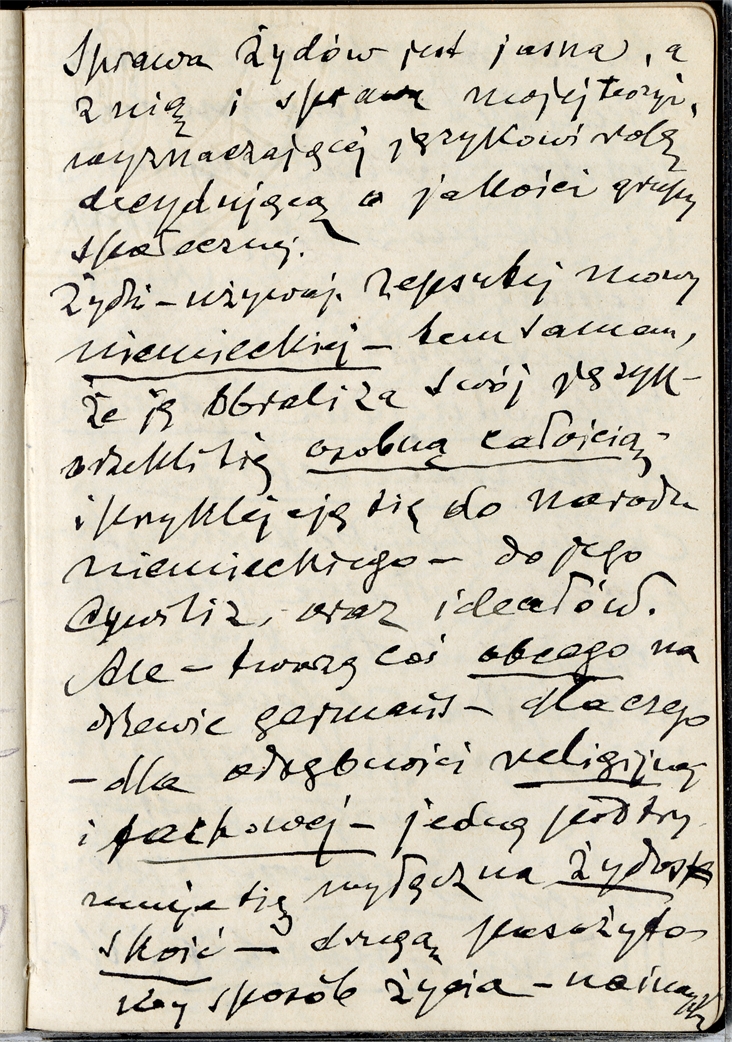 Sprawa Żydów jest jasna, a
z nią i sprawa mojej teorji,
wyznaczającej językowi rolę
decydującą o jakości grupy
społecznej.
Żydzi – używaj. zepsutej mowy
niemieckiej – tem samem,
że ją obrali za swój język –
wrzekli się osobną całością –
i przyklejają się do narodu
niemieckiego – do jego
cywiliz. oraz ideałów.
Ale – tworzą coś obcego na
drzewie germańs – dlaczego
– dla odrębności religijnej
i fachowej – jedną podtrzy
muje się wyłączna żydos
skość – drugą pasożyto
wy sposób życia –